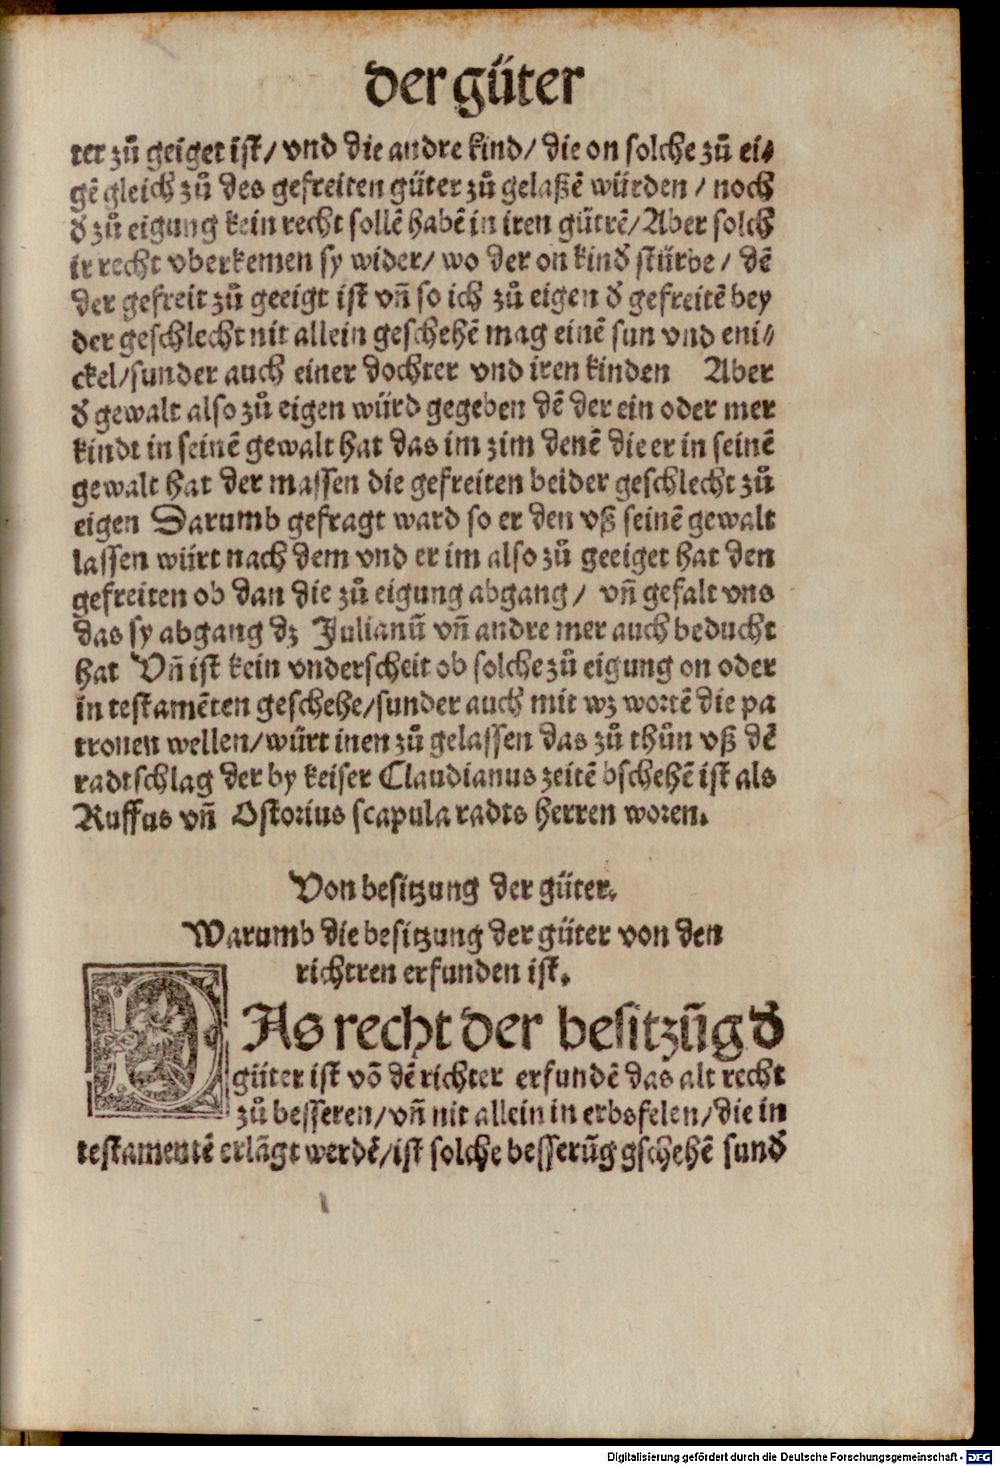 der güter
ter zů geiget ist/ vnd die andre kind/ die on solche zů ei⸗
gē gleich zů des gefreiten güter zů gelaßē würden / noch
d᷎ zů eigung kein recht sollē habē in iren gütrē/ Aber solch
ir recht vberkemen sy wider/ wo der on kind stürbe / dē
der gefreit zů geeigt ist vn̄ so ich zů eigen d᷎ gefreitē bey
der geschlecht nit allein geschehē mag einē sun vnd eni⸗
ckel/sunder auch einer dochter vnd iren kinden Aber
d᷎ gewalt also zů eigen würd gegeben dē der ein oder mer
kindt in seinē gewalt hat das im zim denē die er in seinē
gewalt hat der massen die gefreiten beider geschlecht zů
eigen Darumb gefragt ward so er den vß seinē gewalt
lassen würt nach dem vnd er im also zů geeiget hat den
gefreiten ob dan die zů eigung abgang/ vn̄ gefalt vns
das sy abgang dz Julianū vn̄ andre mer auch beducht
hat Vn̄ ist kein vnderscheit ob solche zů eigung on oder
in testamēten geschehe/sunder auch mit wz wortē die pa
tronen wellen/würt inen zů gelassen das zů thůn vß dē
radtschlag der by keiser Claudianus zeitē bschehē ist als
Ruffus vn̄ Ostorius scapula radts herren woren.
Von besitzung der güter.
Warumb die besitzung der güter von den
richtren erfunden ist.
DAs recht der besitzūg d᷎
güter ist vō dē richter erfundē das alt recht
zů besseren/vn̄ nit allein in erbsfelen/die in
testamentē erlāgt werdē/ist solche besserūg gschehē sund᷎
Digitalisierung gefördert durch die Deutsche Forschungsgemeinschaft - DFG